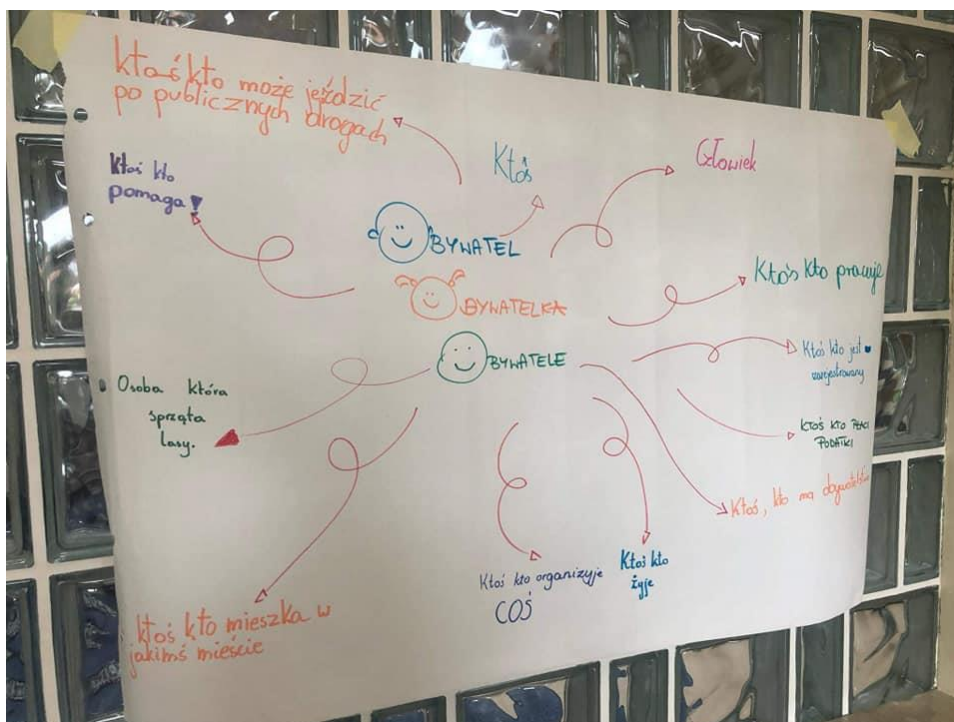 ktoś kto może jeździć
po publicznych drogach
Ktoś
Człowiek
Ktoś kto
pomaga!
OBYWATEL
OBYWATELKA
OBYWATELE
Ktoś kto pracuje
Ktoś kto jest
zarejestrowany
KTOŚ KTO PŁACI
PODATKI
Ktoś, kto ma obywatelstwo
Osoba która
sprząta
lasy.
Ktoś kto organizyje
COŚ
Ktoś kto
żyje
ktoś kto mieszka w
jakimś mieście